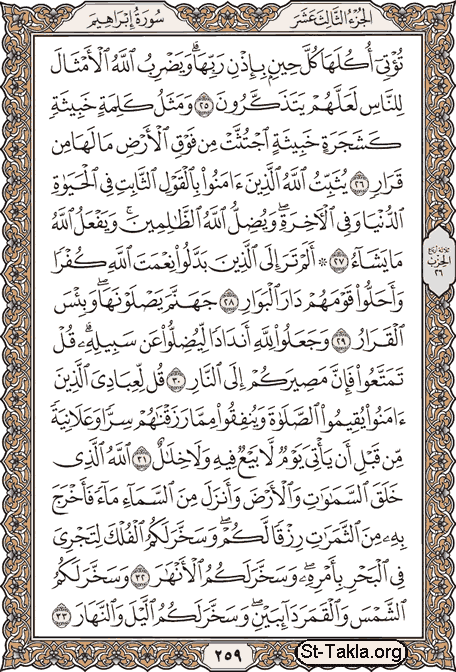 الجُزءُ الثَّالِثَ عَشَرَ
سُورَةُ إِبْرَاهِيمَ
تُؤْتِىٓ أُكُلَهَا كُلَّ حِينٍۭ بِإِذْنِ رَبِّهَا ۗ وَيَضْرِبُ ٱللَّهُ ٱلْأَمْثَالَ
لِلنَّاسِ لَعَلَّهُمْ يَتَذَكَّرُونَ ٢٥ وَمَثَلُ كَلِمَةٍ خَبِيثَةٍ
كَشَجَرَةٍ خَبِيثَةٍ ٱجْتُثَّتْ مِن فَوْقِ ٱلْأَرْضِ مَا لَهَا مِن
قَرَارٍ ٢٦ يُثَبِّتُ ٱللَّهُ ٱلَّذِينَ ءَامَنُوا۟ بِٱلْقَوْلِ ٱلثَّابِتِ فِى ٱلْحَيَوٰةِ
ٱلدُّنْيَا وَفِى ٱلْءَاخِرَةِ ۖ وَيُضِلُّ ٱللَّهُ ٱلظَّٰلِمِينَ ۚ وَيَفْعَلُ ٱللَّهُ
مَا يَشَآءُ ٢٧ ۞ أَلَمْ تَرَ إِلَى ٱلَّذِينَ بَدَّلُوا۟ نِعْمَتَ ٱللَّهِ كُفْرًا
وَأَحَلُّوا۟ قَوْمَهُمْ دَارَ ٱلْبَوَارِ ٢٨ جَهَنَّمَ يَصْلَوْنَهَا ۖ وَبِئْسَ
ٱلْقَرَارُ ٢٩ وَجَعَلُوا۟ لِلَّهِ أَندَادًا لِّيُضِلُّوا۟ عَن سَبِيلِهِۦ ۗ قُلْ
تَمَتَّعُوا۟ فَإِنَّ مَصِيرَكُمْ إِلَى ٱلنَّارِ ٣٠ قُل لِّعِبَادِىَ ٱلَّذِينَ
ءَامَنُوا۟ يُقِيمُوا۟ ٱلصَّلَوٰةَ وَيُنفِقُوا۟ مِمَّا رَزَقْنَٰهُمْ سِرًّا وَعَلَانِيَةً
مِّن قَبْلِ أَن يَأْتِىَ يَوْمٌ لَّا بَيْعٌ فِيهِ وَلَا خِلَٰلٌ ٣١ ٱللَّهُ ٱلَّذِى
خَلَقَ ٱلسَّمَٰوَٰتِ وَٱلْأَرْضَ وَأَنزَلَ مِنَ ٱلسَّمَآءِ مَآءً فَأَخْرَجَ
بِهِۦ مِنَ ٱلثَّمَرَٰتِ رِزْقًا لَّكُمْ ۖ وَسَخَّرَ لَكُمُ ٱلْفُلْكَ لِتَجْرِىَ
فِى ٱلْبَحْرِ بِأَمْرِهِۦ ۖ وَسَخَّرَ لَكُمُ ٱلْأَنْهَٰرَ ٣٢ وَسَخَّرَ لَكُمُ
ٱلشَّمْسَ وَٱلْقَمَرَ دَآئِبَيْنِ ۖ وَسَخَّرَ لَكُمُ ٱلَّيْلَ وَٱلنَّهَارَ ٣٣
الحِزْب
٢٦
٢٥٩
St-Takla.org